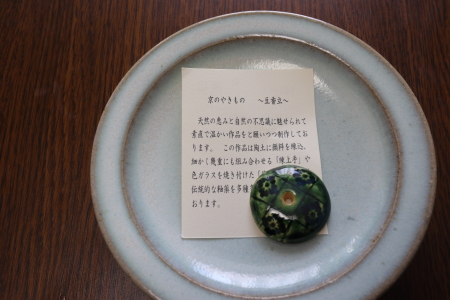 京のやきもの　～豆香立～
天然の恵みと自然の不思議に魅せられて
素直で温かい作品をと願いつつ制作してお
ります。　この作品は陶土に顔料を練込、
細かく幾重にも組み合わせる「練上手」や
色ガラスを焼き付けた「
伝統的な釉薬を多種
おります。